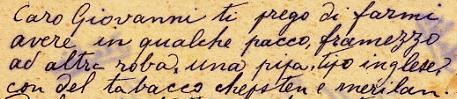 Caro Giovanni ti prego di farmi
avere in qualche pacco, framezzo
ad altra roba, una pipa, tipo inglese,
con del tabacco chepsten e merilan.